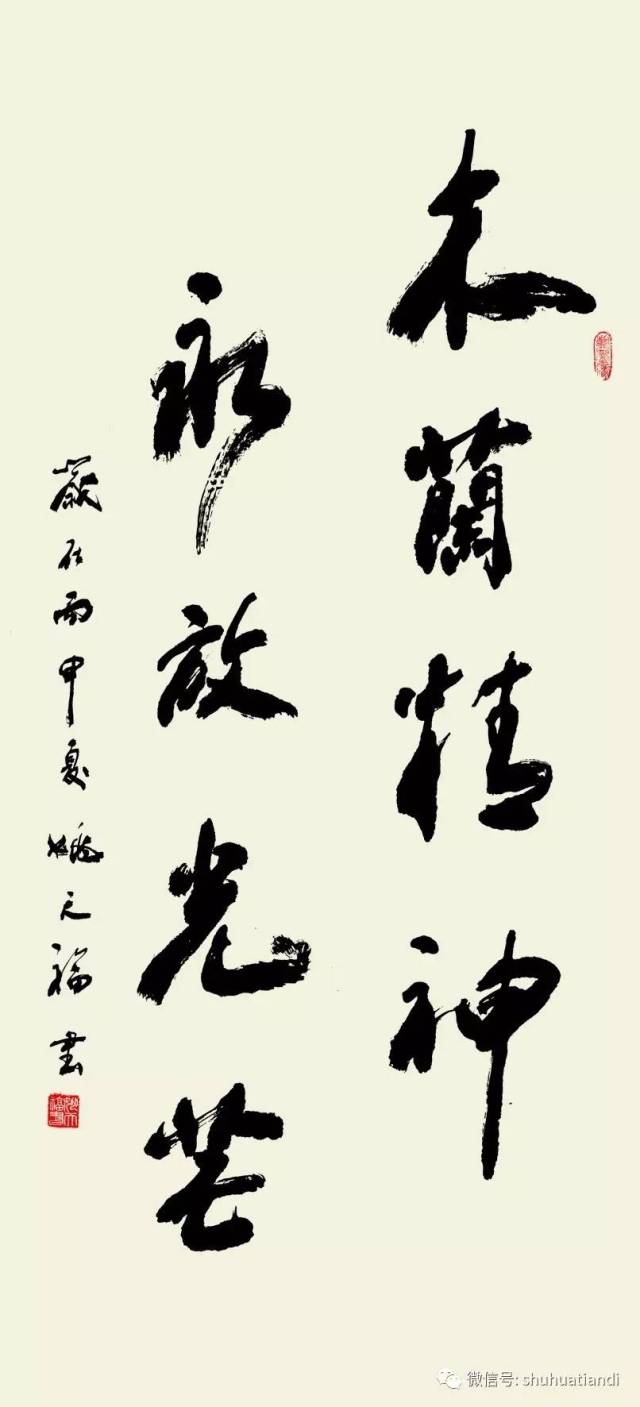 木蘭精神
永放光芒
歲在丙申夏 天福書
微信号: shuhuatiandi